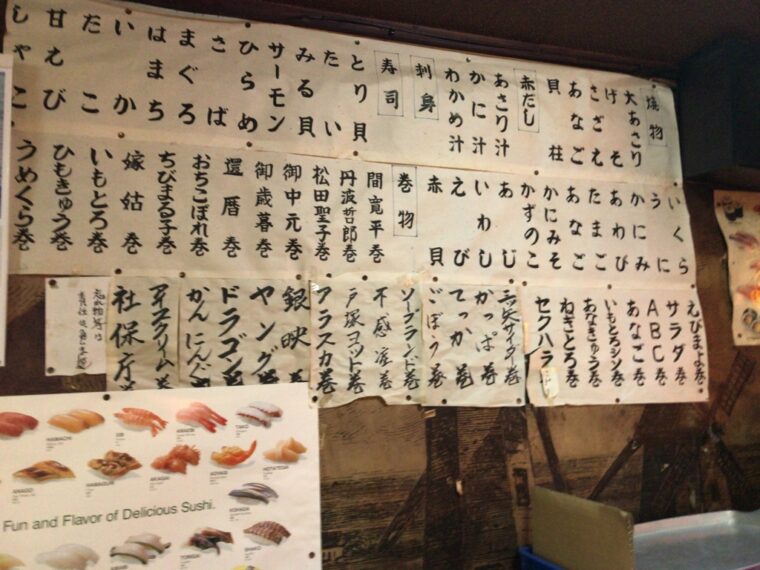 焼物
大あさり
さざえ
げそ
あなご
貝柱
赤だし
あさり汁
かに汁
わかめ汁
刺身
寿司
とり貝
たい
みる貝
サーモン
ひらめ
さば
まぐろ
はまち
いか
たこ
甘えび
しゃこ
いくら
うに
かにみ
あわび
たまご
あなご
かにみそ
かずのこ
あじ
いわし
えび
赤貝
巻物
間寛平巻
丹波哲郎巻
松田聖子巻
御中元巻
御歳暮巻
還暦巻
おちこぼれ巻
ちびまる子巻
嫁姑巻
いもとろ巻
ひもきゅう巻
うめくら巻
えびまよ巻
サラダ巻
ABC巻
あなご巻
いもとろシン巻
あなきゅう巻
ねぎとろ巻
セクハラ巻
三矢サイダー巻
かっぱ巻
てっか巻
ごぼう巻
ソープランド巻
不感症巻
戸塚ヨット巻
アラスカ巻
銀映巻
ヤング巻
ドラゴン巻
かんにんぐ
アイスクリーム巻
社保庁
HAMACHI
EBI
AMAEBI
TAKO
ANAGO
HAMAGURI
AKAGAI
AOYAGI
HOTATEGAI
KOHADA
SHAKO
Fun and Flavor of Delicious Sushi.